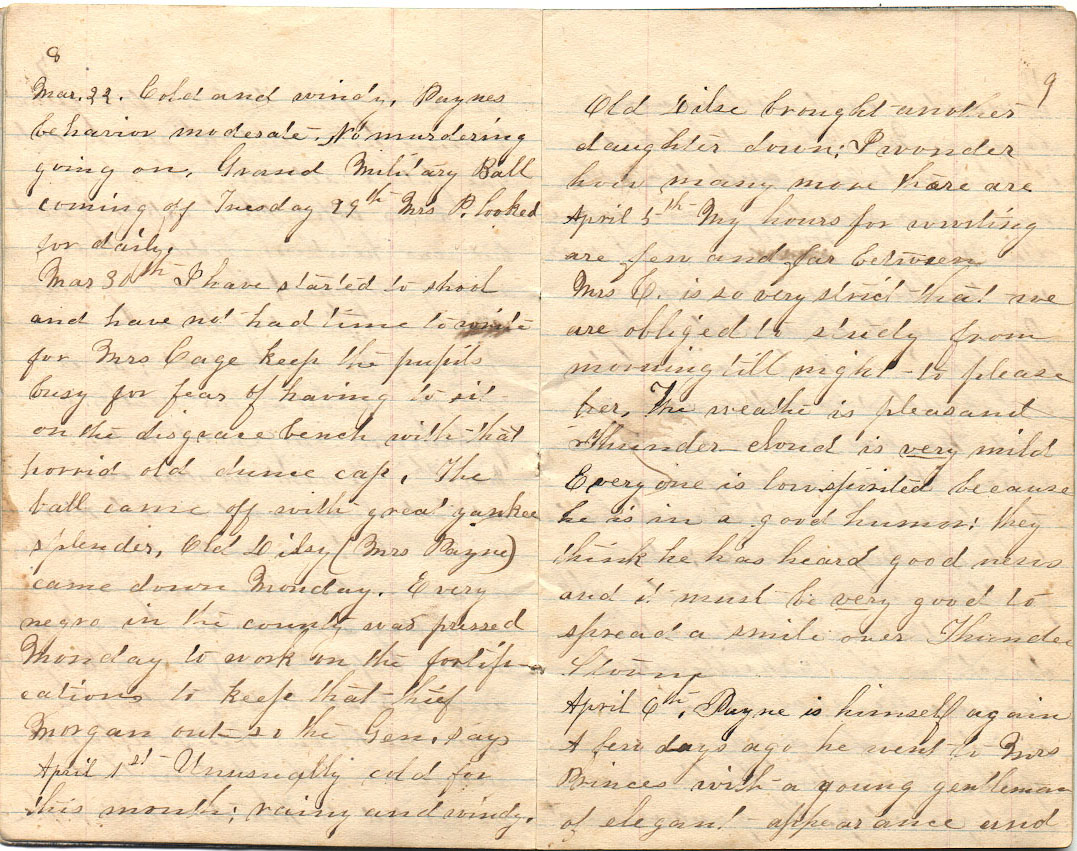 8
Mar. 22. Cold and windy. Paynes
behavior moderate. No murdering
going on. Grand Military Ball
coming of Tuesday 29th Mrs P. looked
for daily.
Mar 30th I have started to shool
and have not had time to write
for Mrs Cage keep the pupils
busy for fear of having to sit
on the disgrace bench with that
horrid old dunce cap. The
ball came off with great yankee
splender. Old Dilsy (Mrs Payne)
came down Monday. Every
negro in the county was pressed
Monday to work on the fortifi-
cations to keep that thief
Morgan out so the Gen. says
April 1st Unusually cold for
this month; rainy and windy.
9
Old Dilse brought another
daughter down; I wonder
how many more thare are
April 5th My hours for writing
are few and far between
Mrs C. is so very strict that we
are obliged to study from
morning till night to please
her. The weathe is pleasand
Thunder Cloud is very mild
Every one is low spirited because
he is in a good humor; they
think he has heard good news
and it must be very good to
spread a smile over Thunder
Storm
April 6th. Payne is himself again
A few days ago he went to Mrs
Princes with a young gentleman
of elegant appearance and